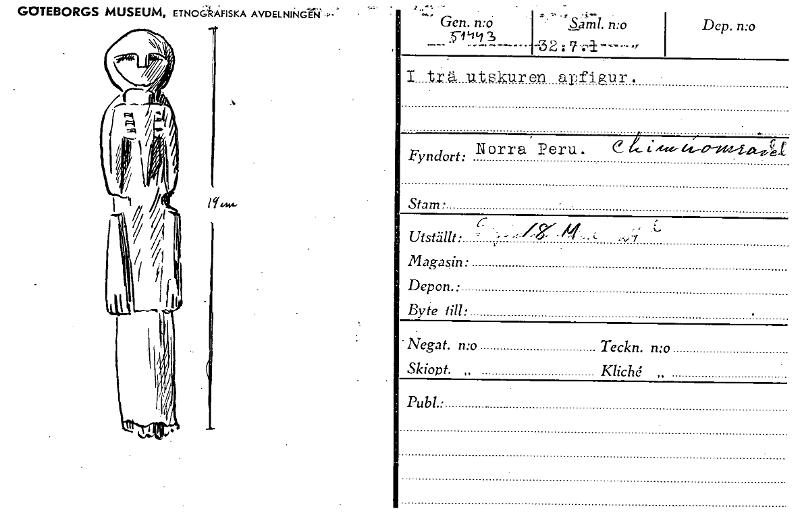 GÖTEBORGS MUSEUM, ETNOGRAFISKA AVDELNINGEN
Gen. n:o Saml. n:o Dep. n:o
51443 32:7.1
I trä utskuren apfigur.
Fyndort: Norra Peru. Chimúområdet
Stam:
Utställt: 18 M
Magasin:
Depon.:
Byte till:
Negat. n:o Teckn. n:o
Skiopt. „ Kliché „
Publ.:
19 cm